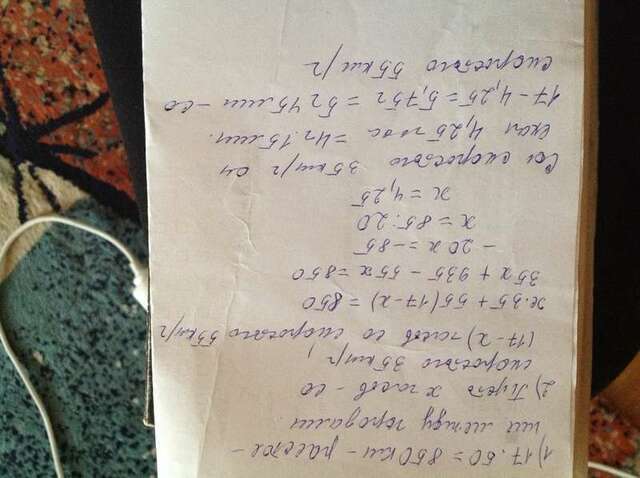 1) 17·50 = 850 км - рассто-
ние между городами
2) Пусть x часов - со
скоростью 35 км/ч,
(17-x) часов со скоростью 55 км/ч
x·35 + 55(17-x) = 850
35x + 935 - 55x = 850
-20x = -85
x = 85:20
x = 4,25
Со скоростью 35 км/ч он
ехал 4,25 час = 4ч.15мин.
17-4,25=5,75ч = 5ч 45мин - со
скоростью 55 км/ч